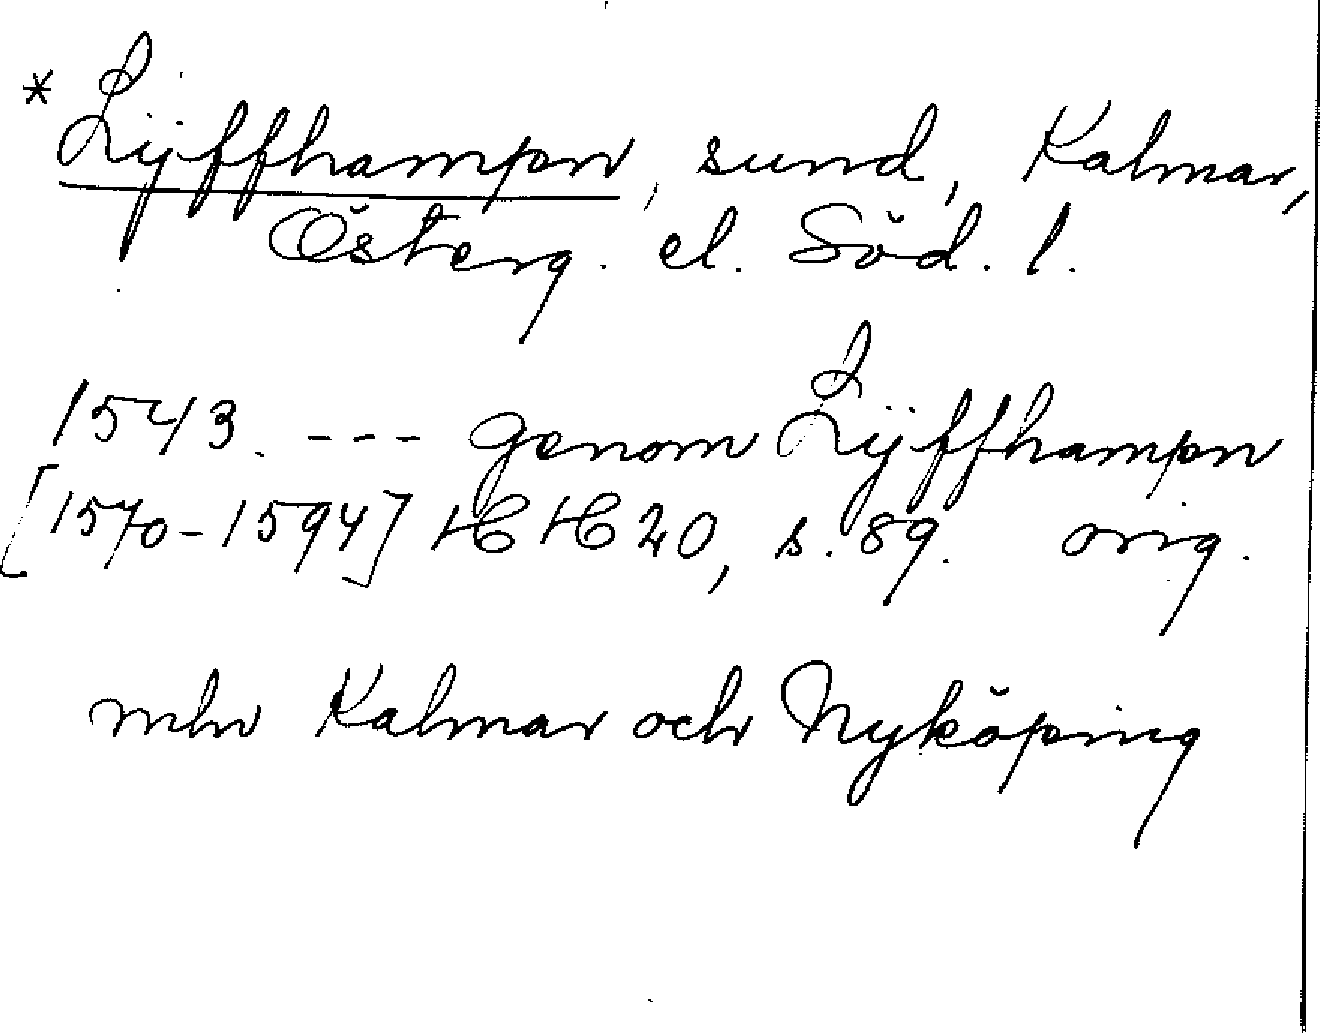 * Lÿffhampn, sund, Kalmar,
Österg. el. Söd. l.
1543. --- genom Lÿffhampn
[1570-1594] HH 20, s. 89. orig.
mln Kalmar och Nyköping